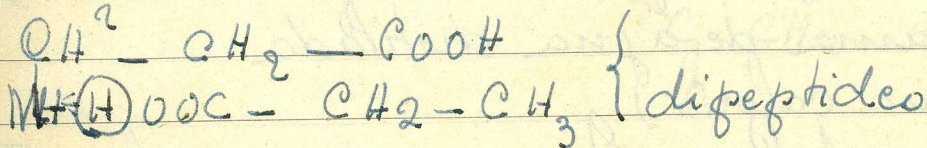 CH² - CH₂ - COOH
NH-(H)OOC - CH2 - CH₃ } dipeptideo